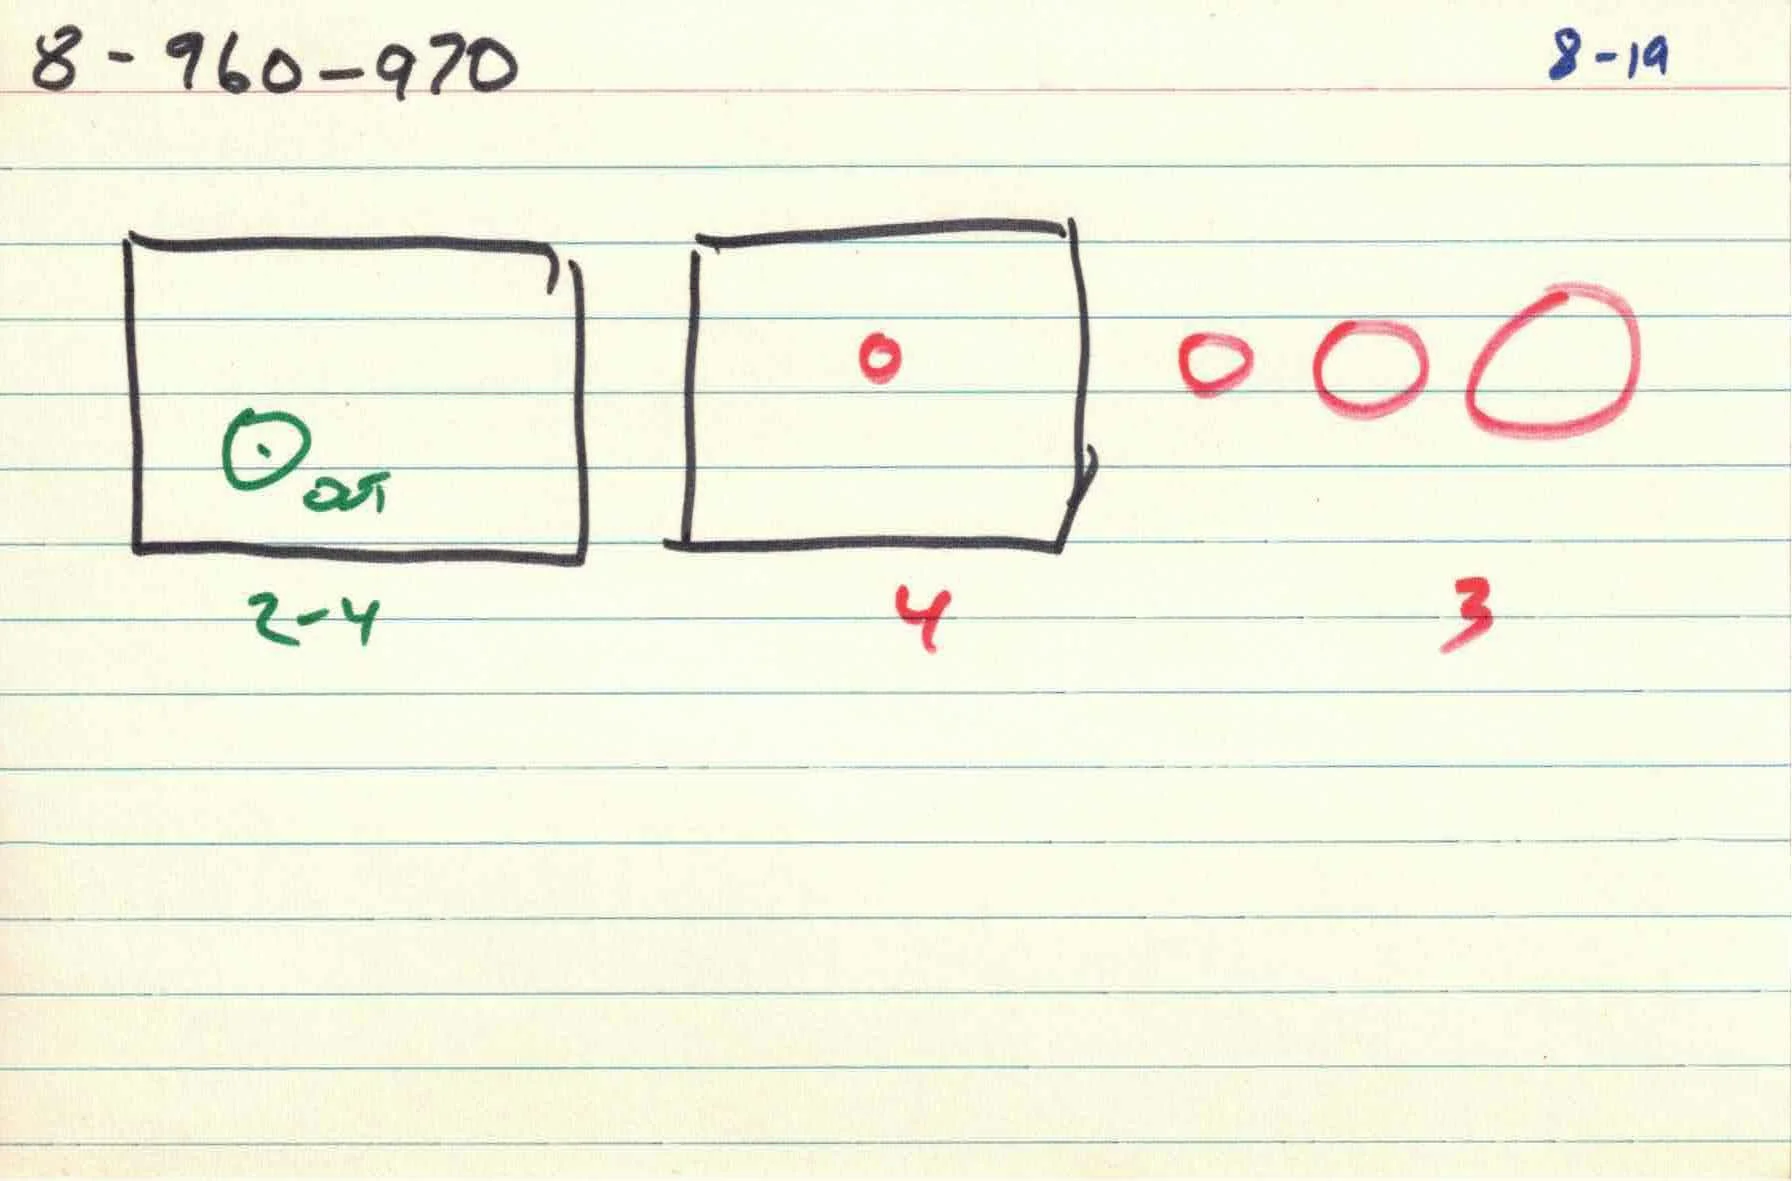 8-960-970
8-19
out
2-4
4
3